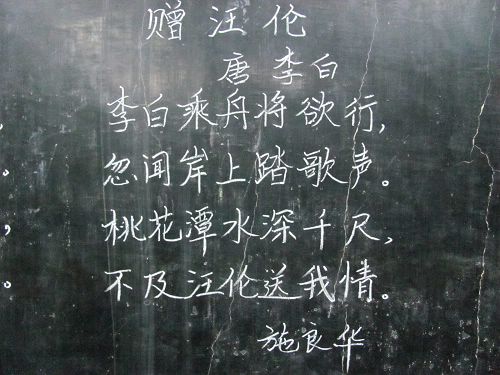 赠汪伦
唐 李白
李白乘舟将欲行,
忽闻岸上踏歌声。
桃花潭水深千尺,
不及汪伦送我情。
施良华